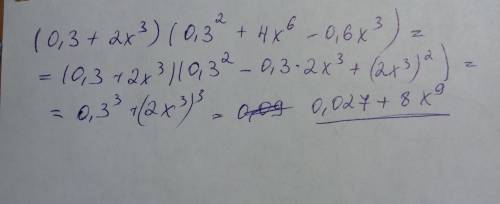 (0,3 + 2x³) (0,3² + 4x⁶ - 0,6x³) =
= (0,3 + 2x³)(0,3² - 0,3·2x³ + (2x³)²) =
= 0,3³ + (2x³)³ = ~~0,09~~ 0,027 + 8x⁹